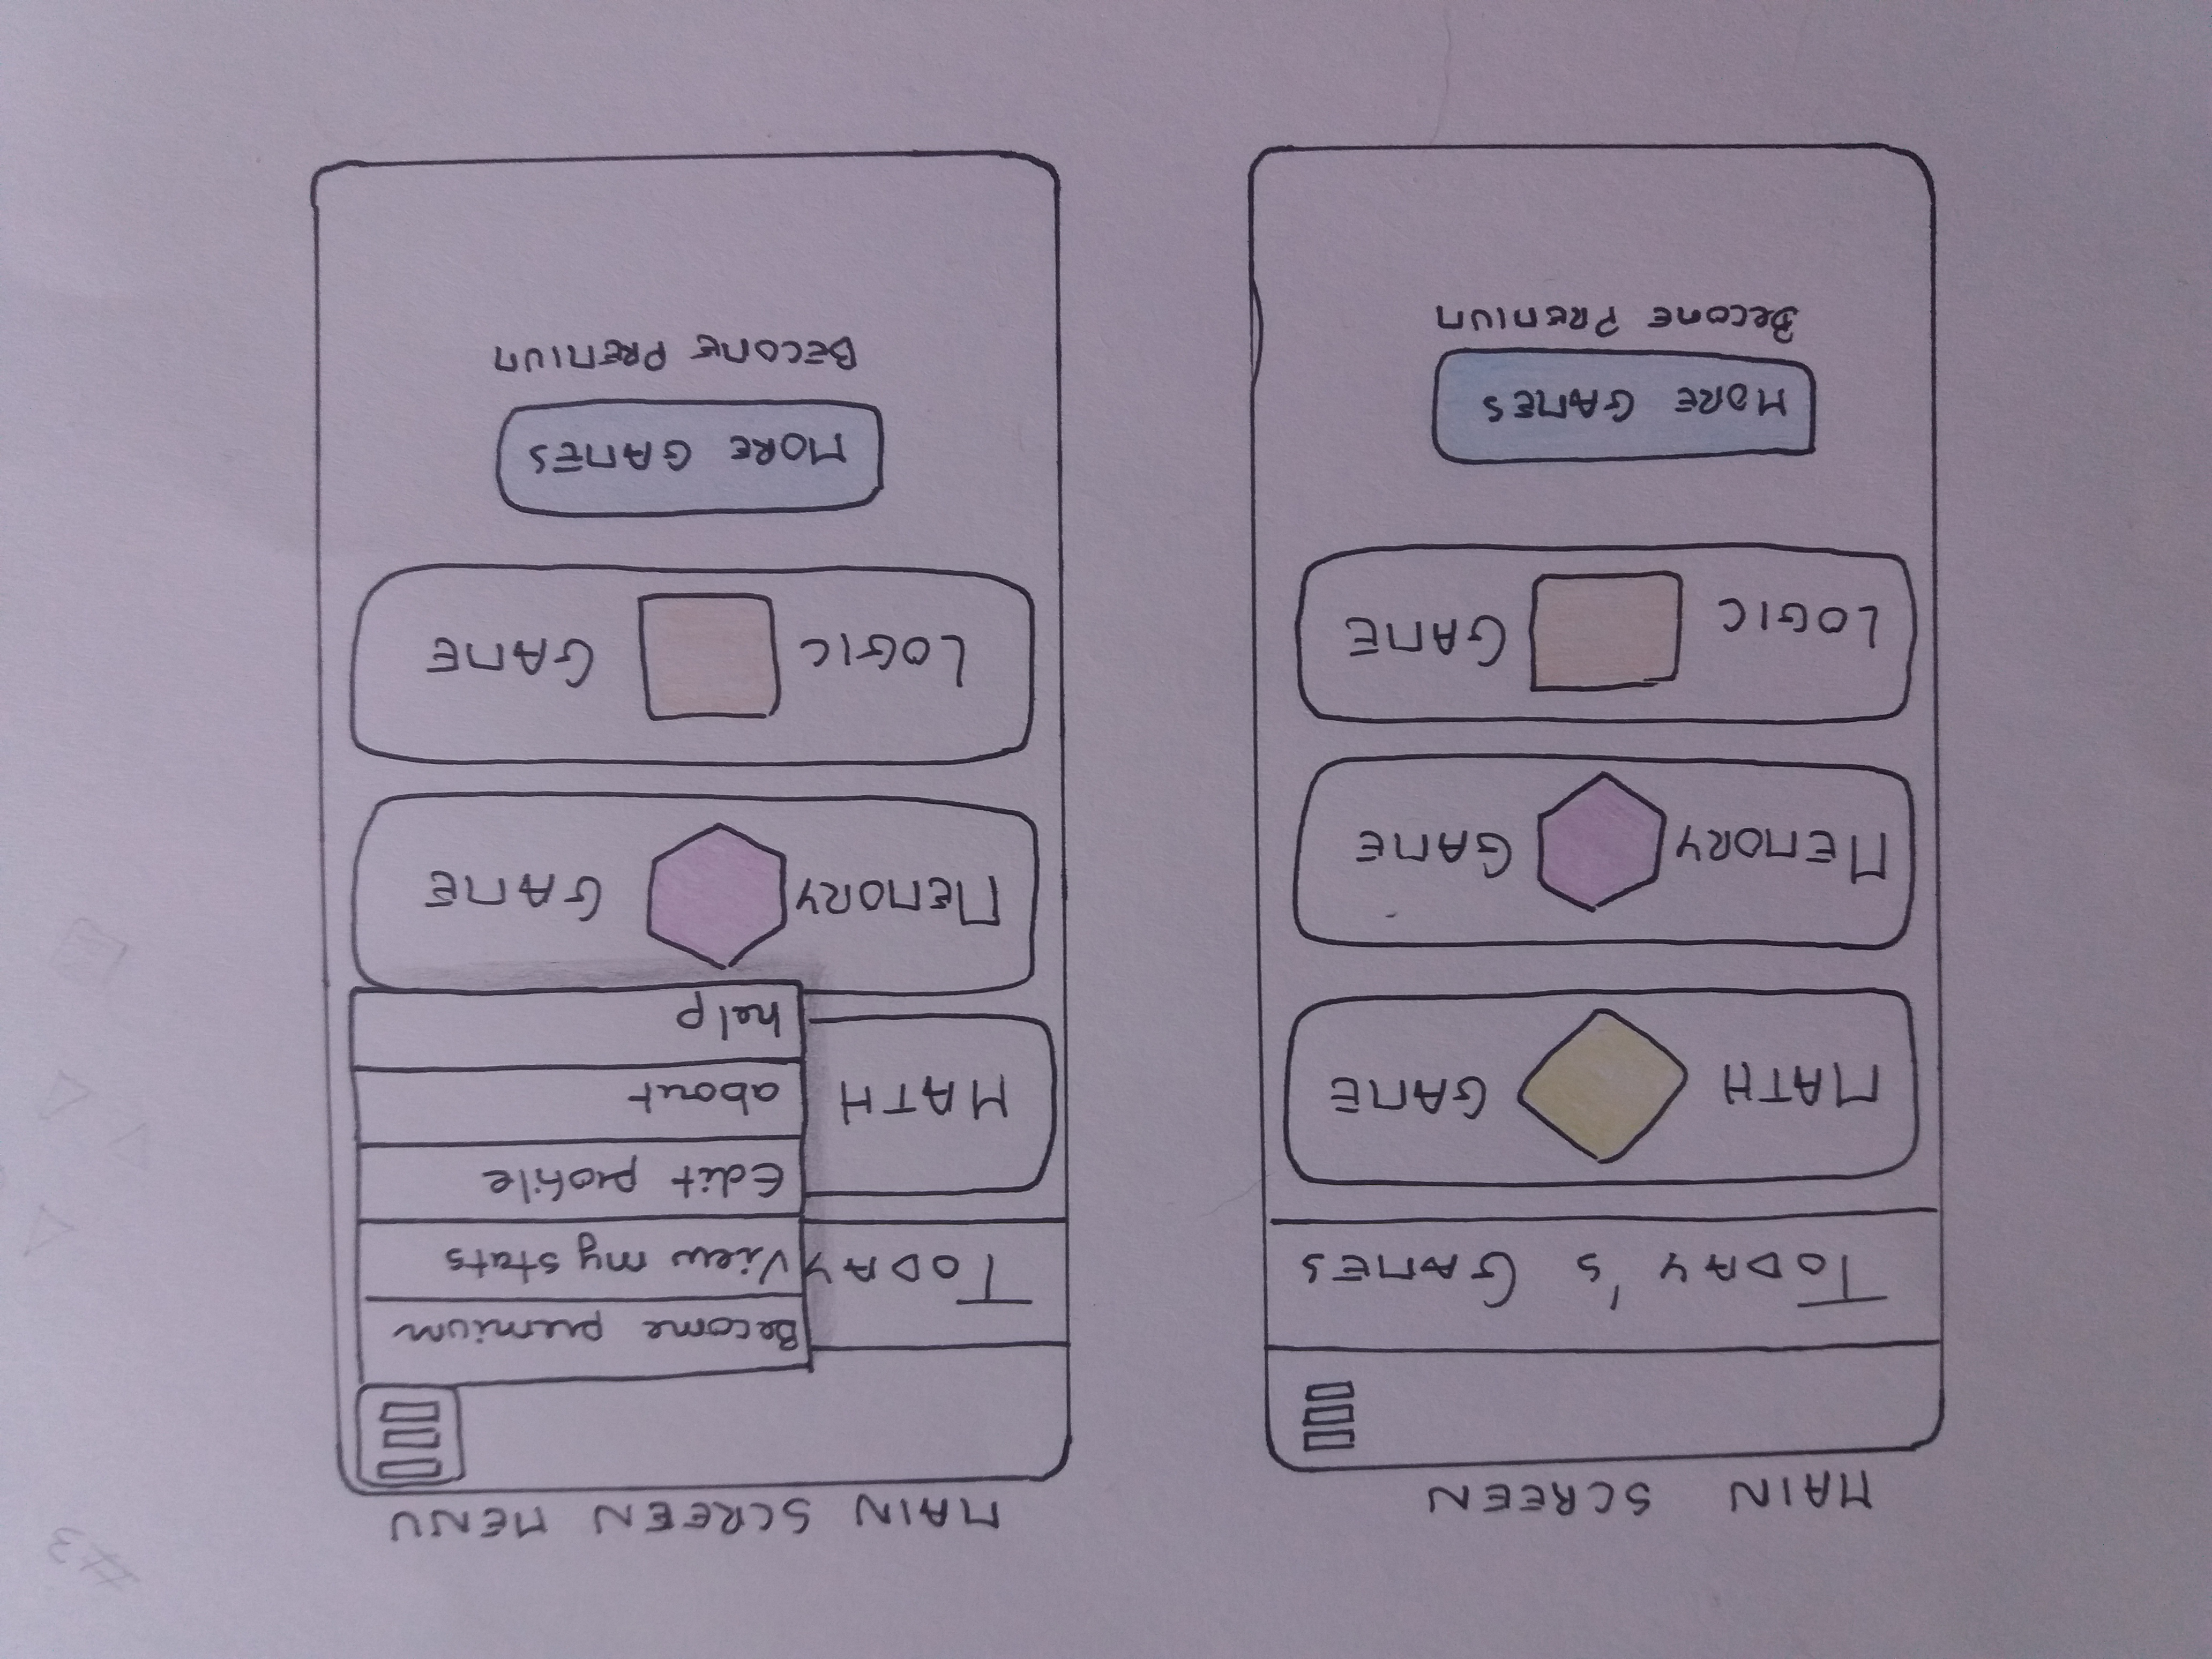 #3
MAIN SCREEN
TODAY'S GAMES
MATH GAME
MEMORY GAME
LOGIC GAME
MORE GAMES
BECOME PREMIUM
MAIN SCREEN MENU
Become premium
View my stats
Edit profile
about
help
TODAY
MATH
MEMORY GAME
LOGIC GAME
MORE GAMES
BECOME PREMIUM